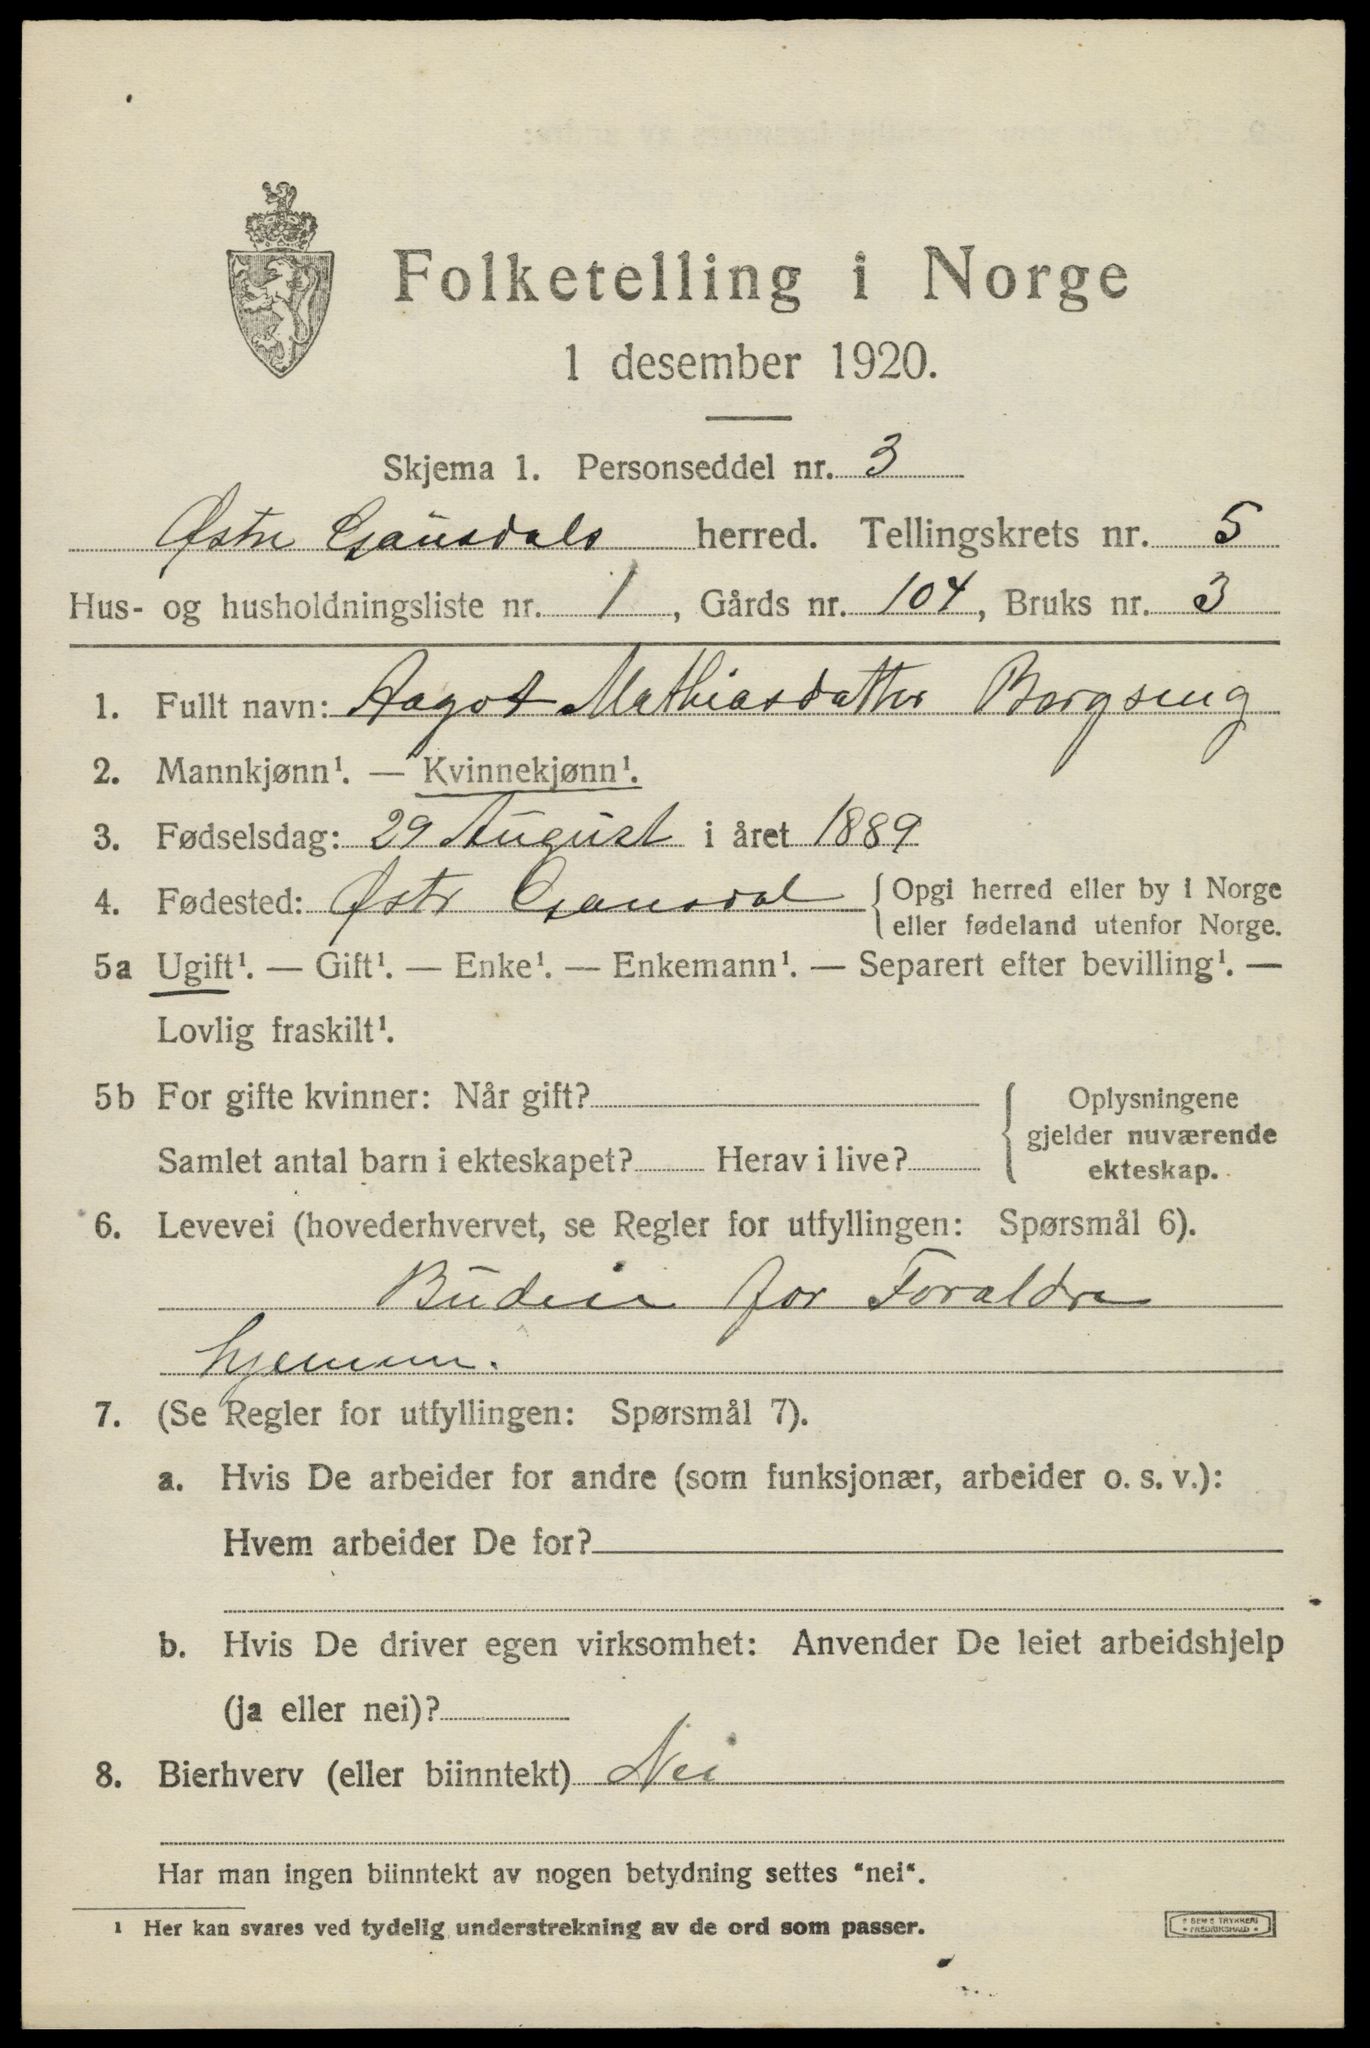 Folketelling i Norge
1 desember 1920.
Skjema 1. Personseddel nr. 3
Østre Gausdals herred. Tellingskrets nr. 5
Hus- og husholdningsliste nr. 1, Gårds nr. 104, Bruks nr. 3
1. Fullt navn: Aagot Mathiasdatter Bergseng
2. Mannkjønn¹. — Kvinnekjønn¹.
3. Fødselsdag: 29 August i året 1889
4. Fødested: Østr Gausdal {Opgi herred eller by i Norge
eller fødeland utenfor Norge.
5a Ugift¹. — Gift¹. — Enke¹. — Enkemann¹. — Separert efter bevilling¹. —
Lovlig fraskilt¹.
5b For gifte kvinner: Når gift? Oplysningene
gjelder nuværende
Samlet antal barn i ekteskapet? Herav i live? ekteskap.
6. Levevei (hovederhvervet, se Regler for utfyllingen: Spørsmål 6).
Budeie for Foraldre
hjemmen.
7. (Se Regler for utfyllingen: Spørsmål 7).
a. Hvis De arbeider for andre (som funksjonær, arbeider o. s. v.):
Hvem arbeider De for?
b. Hvis De driver egen virksomhet: Anvender De leiet arbeidshjelp
(ja eller nei)?
8. Bierhverv (eller biinntekt) Nei
Har man ingen biinntekt av nogen betydning settes "nei".
¹ Her kan svares ved tydelig understrekning av de ord som passer.
TRYKKERI
FREDRIKSHALD